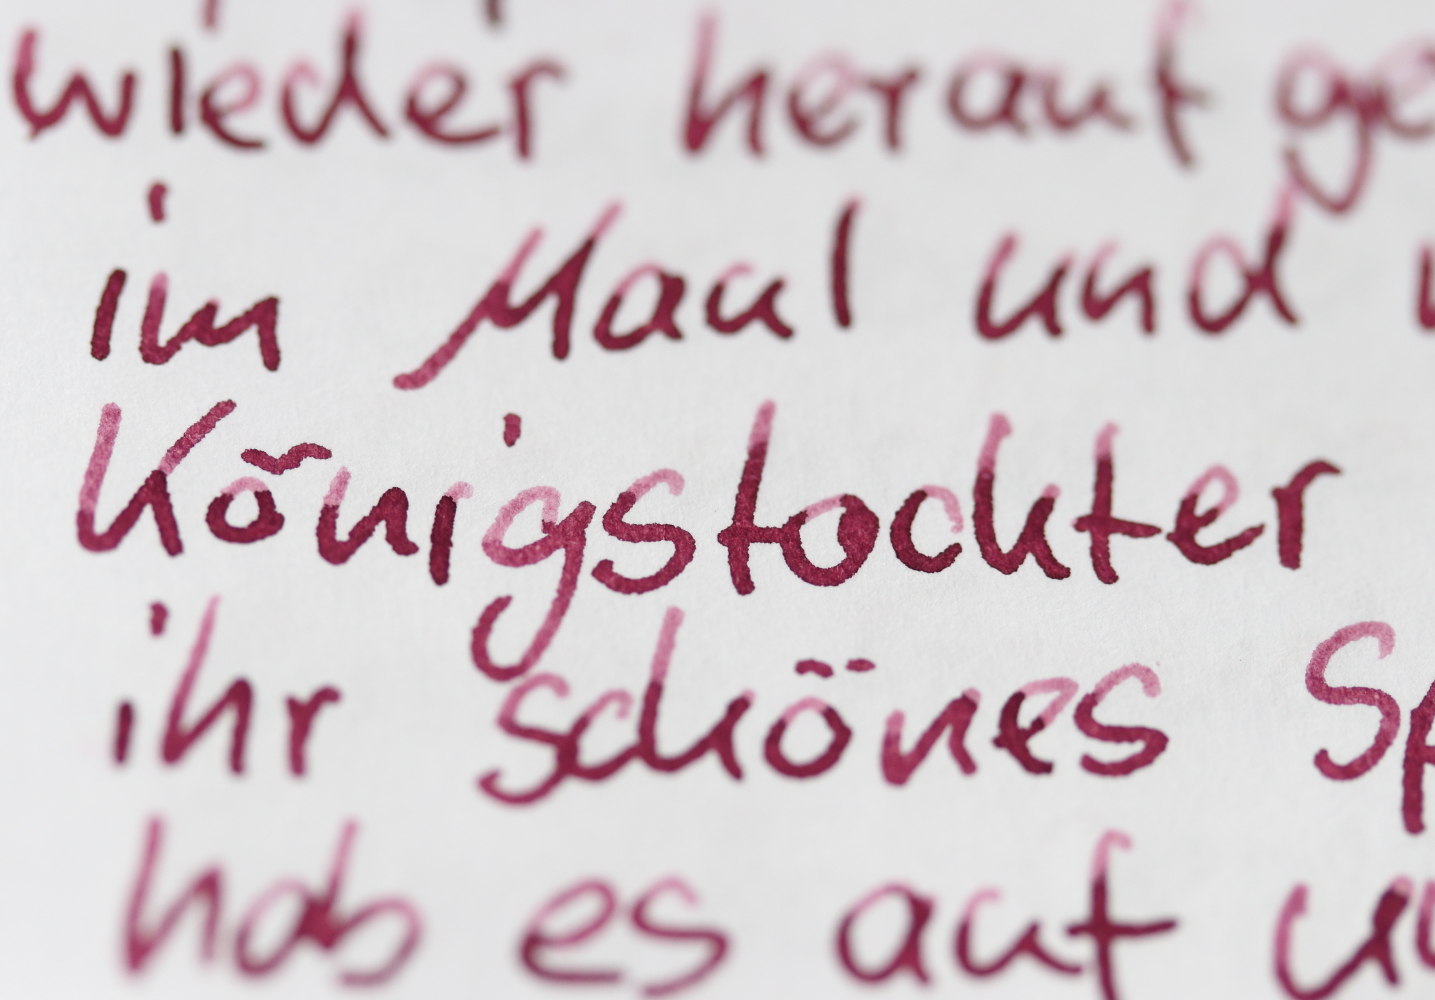 wieder herauf ge
im Maul und
Königstochter
ihr schönes Sp
hob es auf un